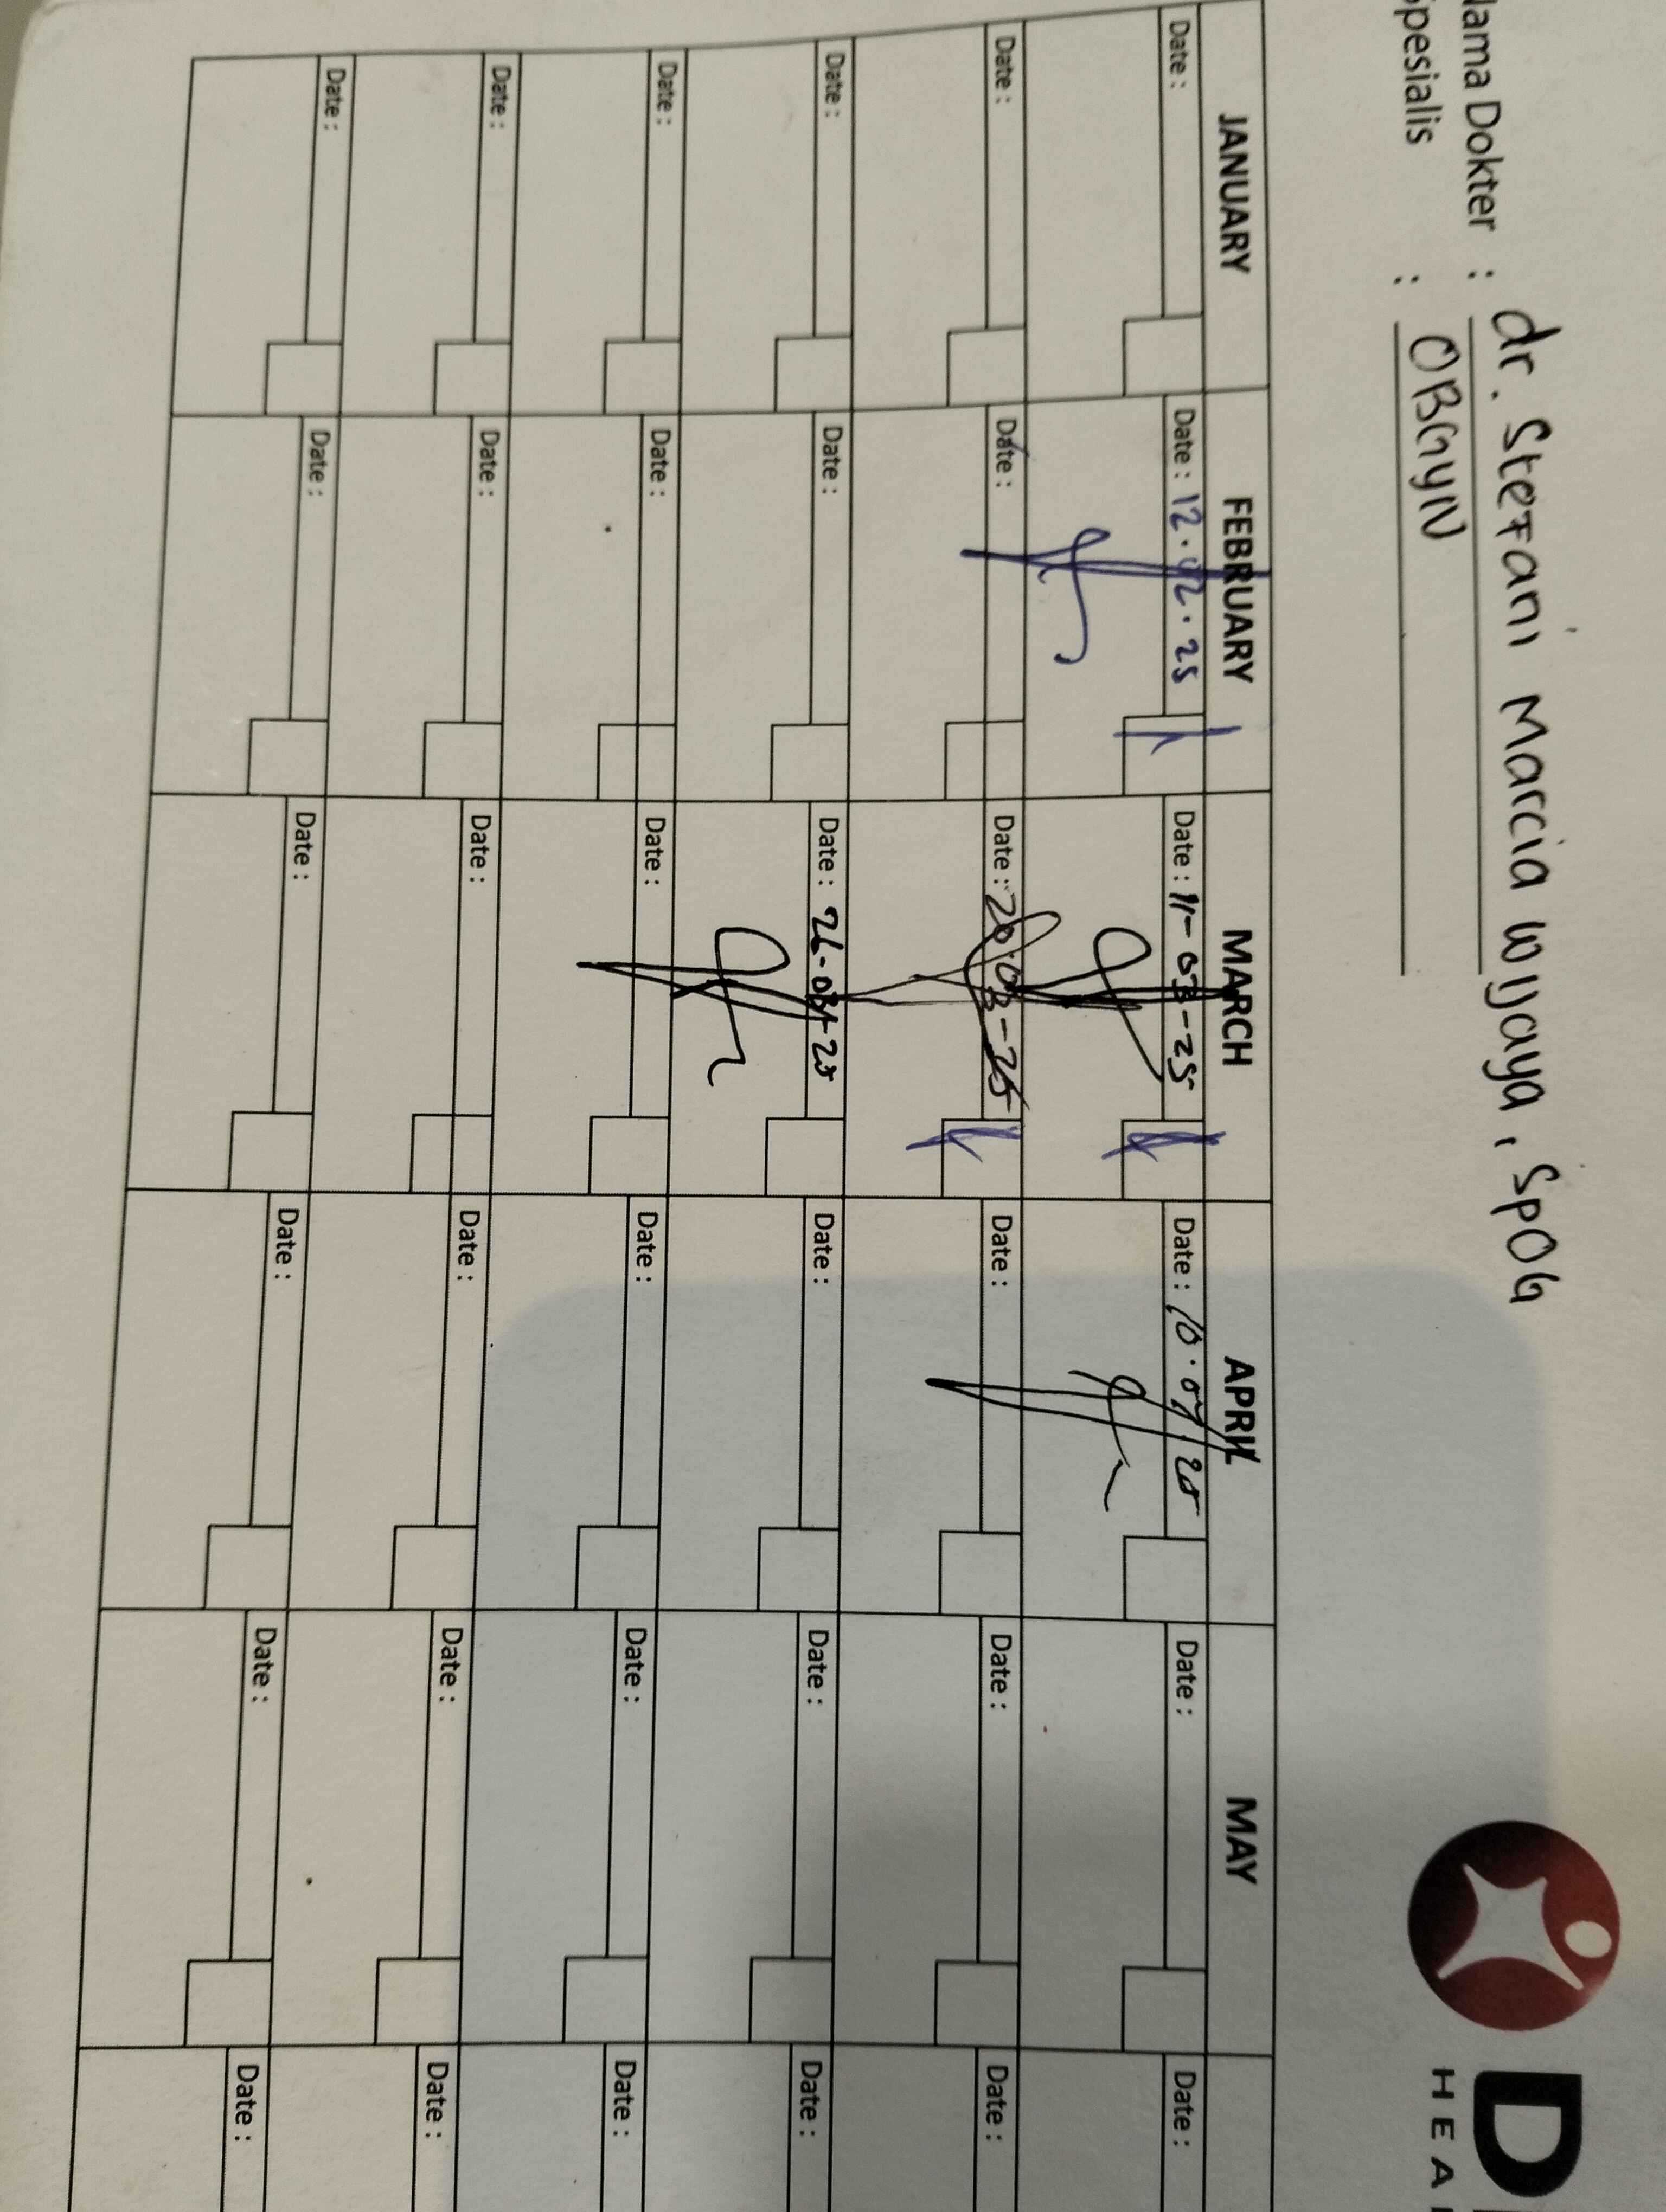 Nama Dokter : dr. Stefani Marcia Wijaya, SpOG
Spesialis : OBGYN
D
HEA
JANUARY FEBRUARY MARCH APRIL MAY
Date : Date : 12.02.25 Date : 11-03-25 Date : 10.04.25 Date : Date :
Date : Date : Date : 20.03-25 Date : Date : Date :
Date : Date : Date : 26-03-25 Date : Date : Date :
Date : Date : Date : Date : Date : Date :
Date : Date : Date : Date : Date : Date :
Date : Date : Date : Date : Date : Date :